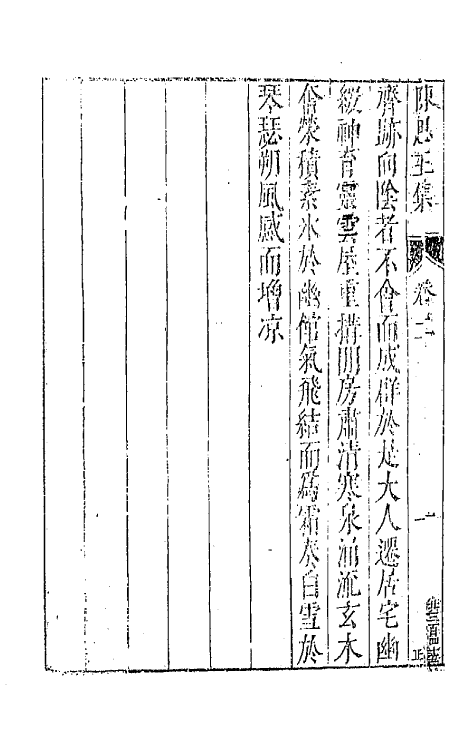 陳思王集
卷二
一
齊跡向陰者不會而成群於是大人遷居宅幽
緩神育靈雲屋重搆閒房肅清寒泉涌流玄木
奮榮積素氷於幽館氣飛結而為霜奏白雪於
琴瑟朔風感而增凉